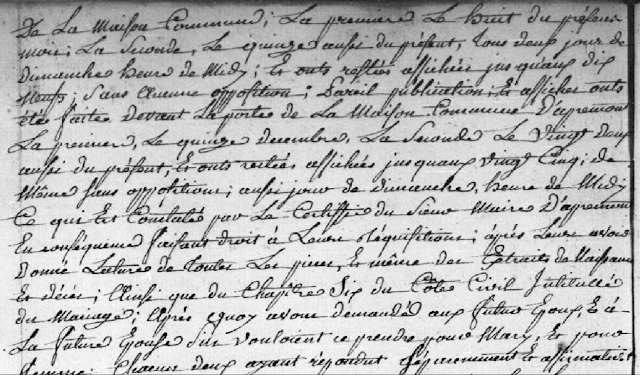 De La Maison Commune; La premiere Le huit du présent
mois; La Seconde, Le quinze aussi du présent, tous deux jour de
dimanche heure de Midy; Et onts restées affichées jusquaux dix
Neuf; Sans Aucune oppotition; Pareil publication; Et affiches onts
étés faites devant La portes de La Maison Commune D'apremont
La premiere, Le quinze decembre, La Seconde Le Vingt deux
aussi du présent, Et onts restées affichées jusquaux vingt Cinq; de
Même Sans oppotitions; aussi jour de dimanche, heure de Midy
Ce qui Est Constatée par Le Certiffié du Sieur Maire D'apremont
En conséquence faisant droit à Leurs réquisitions; après Leurs avoir
Donné Lecture de toutes Les pieces, Et même des Extraits de Naissance
Et décès; Ainsi que du Chapître Six du Côde Civil Intitullé
du Mariage; Après quoy avons demandés aux futur Epoux, Et à
La future Epouse s'ils vouloient ce prendre pour Mary, Et pour
femme; Chacun deux ayant répondut séparément et affirmativ